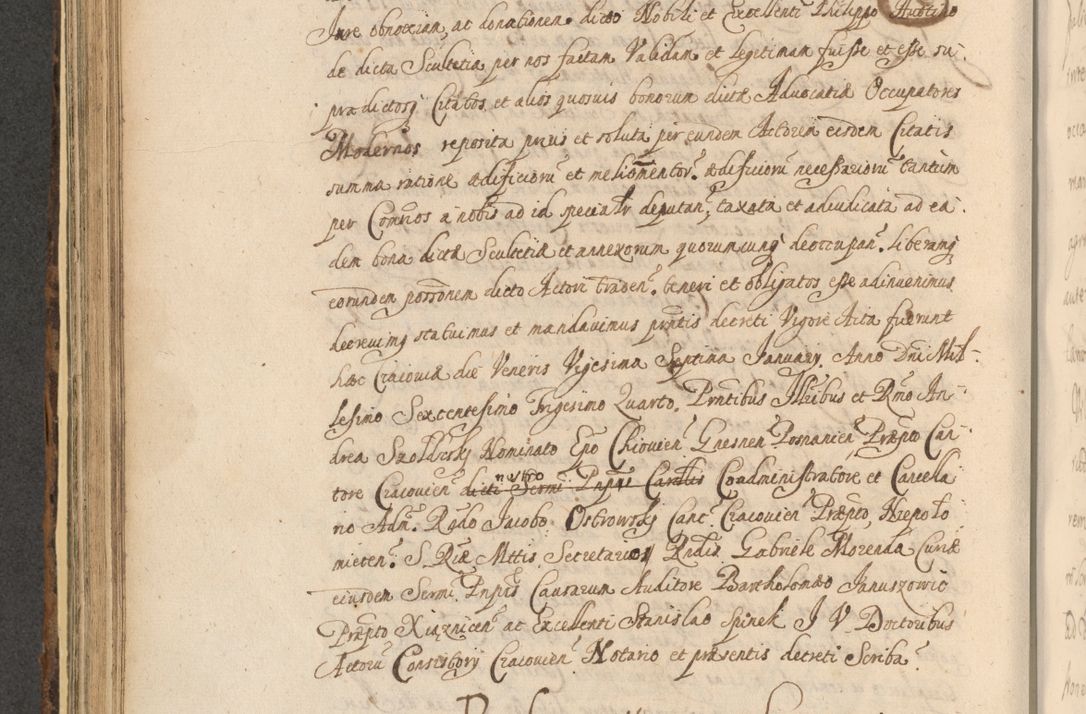 Jure obnoxiam, ac donationem dicto Nobili et Excellenti Philippo Austino
de dicta Scultetia per nos factam Validam et legitimam fuisse et esse su-
pradictosq Citatos et alios quosuis bonorum dictæ Aduocatiæ Occupatores
Modernos reposita prius et soluta per eundem Actorem eisdem Citatis
summa ratione ædificioru et meliomentor. ædificioru necessarioru tantum
per Comrios a nobis ad id specialr deputan, taxata et adiudicata ad ea
dem bona dictæ Scultetiæ et annexorum quorumcunq deoccupan. liberamq
eorundem possonem dicto Actori traden. teneri et obligatos esse adinuenimus
decreuimq statuimus et mandauimus prntis decreti Vigore Acta fuerunt
hæc Cracouiæ die Veneris Vigesima Septima Januarij Anno Dni Mil-
lesimo Sexcentesimo Trigesimo Quarto. Prntibus Illribus et Rmo An-
drea Szoldrskj Nominato Epo Chiouien Gnesnen Posnanien Præpto Can-
tore Cracouien dicti nostro Sermi Pnpis Cardlis Coadministratore et Cancella
rio Adm. Rqdo Jacobo Ostrowskj Canc. Cracouien Præpto Niepoło
micen. S. Riæ Mttis Secretarios Rndis Gabriele Morenda Curiæ
eiusdem Sermi Pnpis Causarum Auditore Bartholomæo Januszowic
Præpto Xiąznicen ac Excellenti Stanislao Spinek J V Doctoribus
Actoru Consistorij Cracouien Notario et præsentis decreti Scriba.